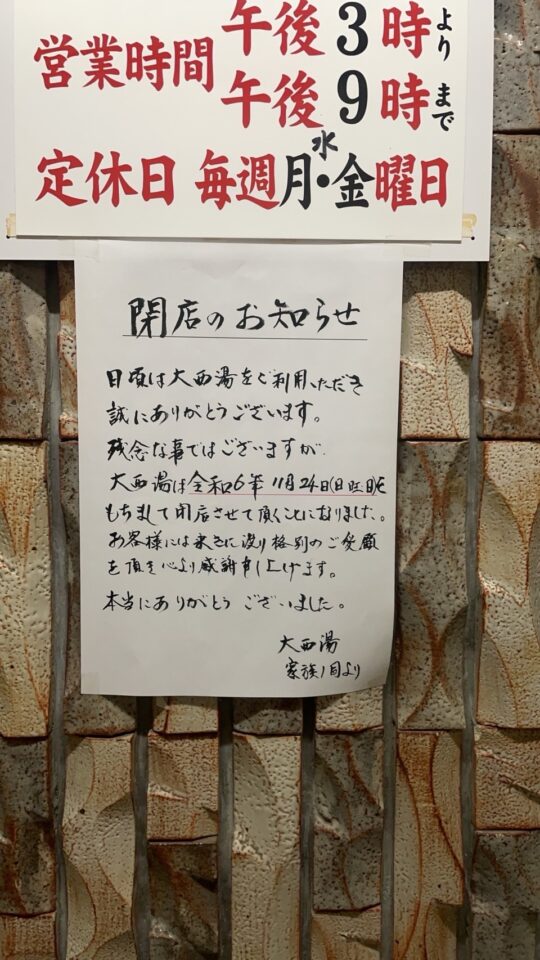 営業時間 午後3時より
午後9時まで
水
定休日 毎週月・金曜日
閉店のお知らせ
日頃は大西湯をご利用いただき
誠にありがとうございます。
残念な事ではございますが、
大西湯は令和6年11月24日(日曜日)を
もちまして閉店させて頂くことになりました。
お客様には永きに渡り格別のご愛顧
を頂き心より感謝申し上げます。
本当にありがとうございました。
大西湯
家族1同より